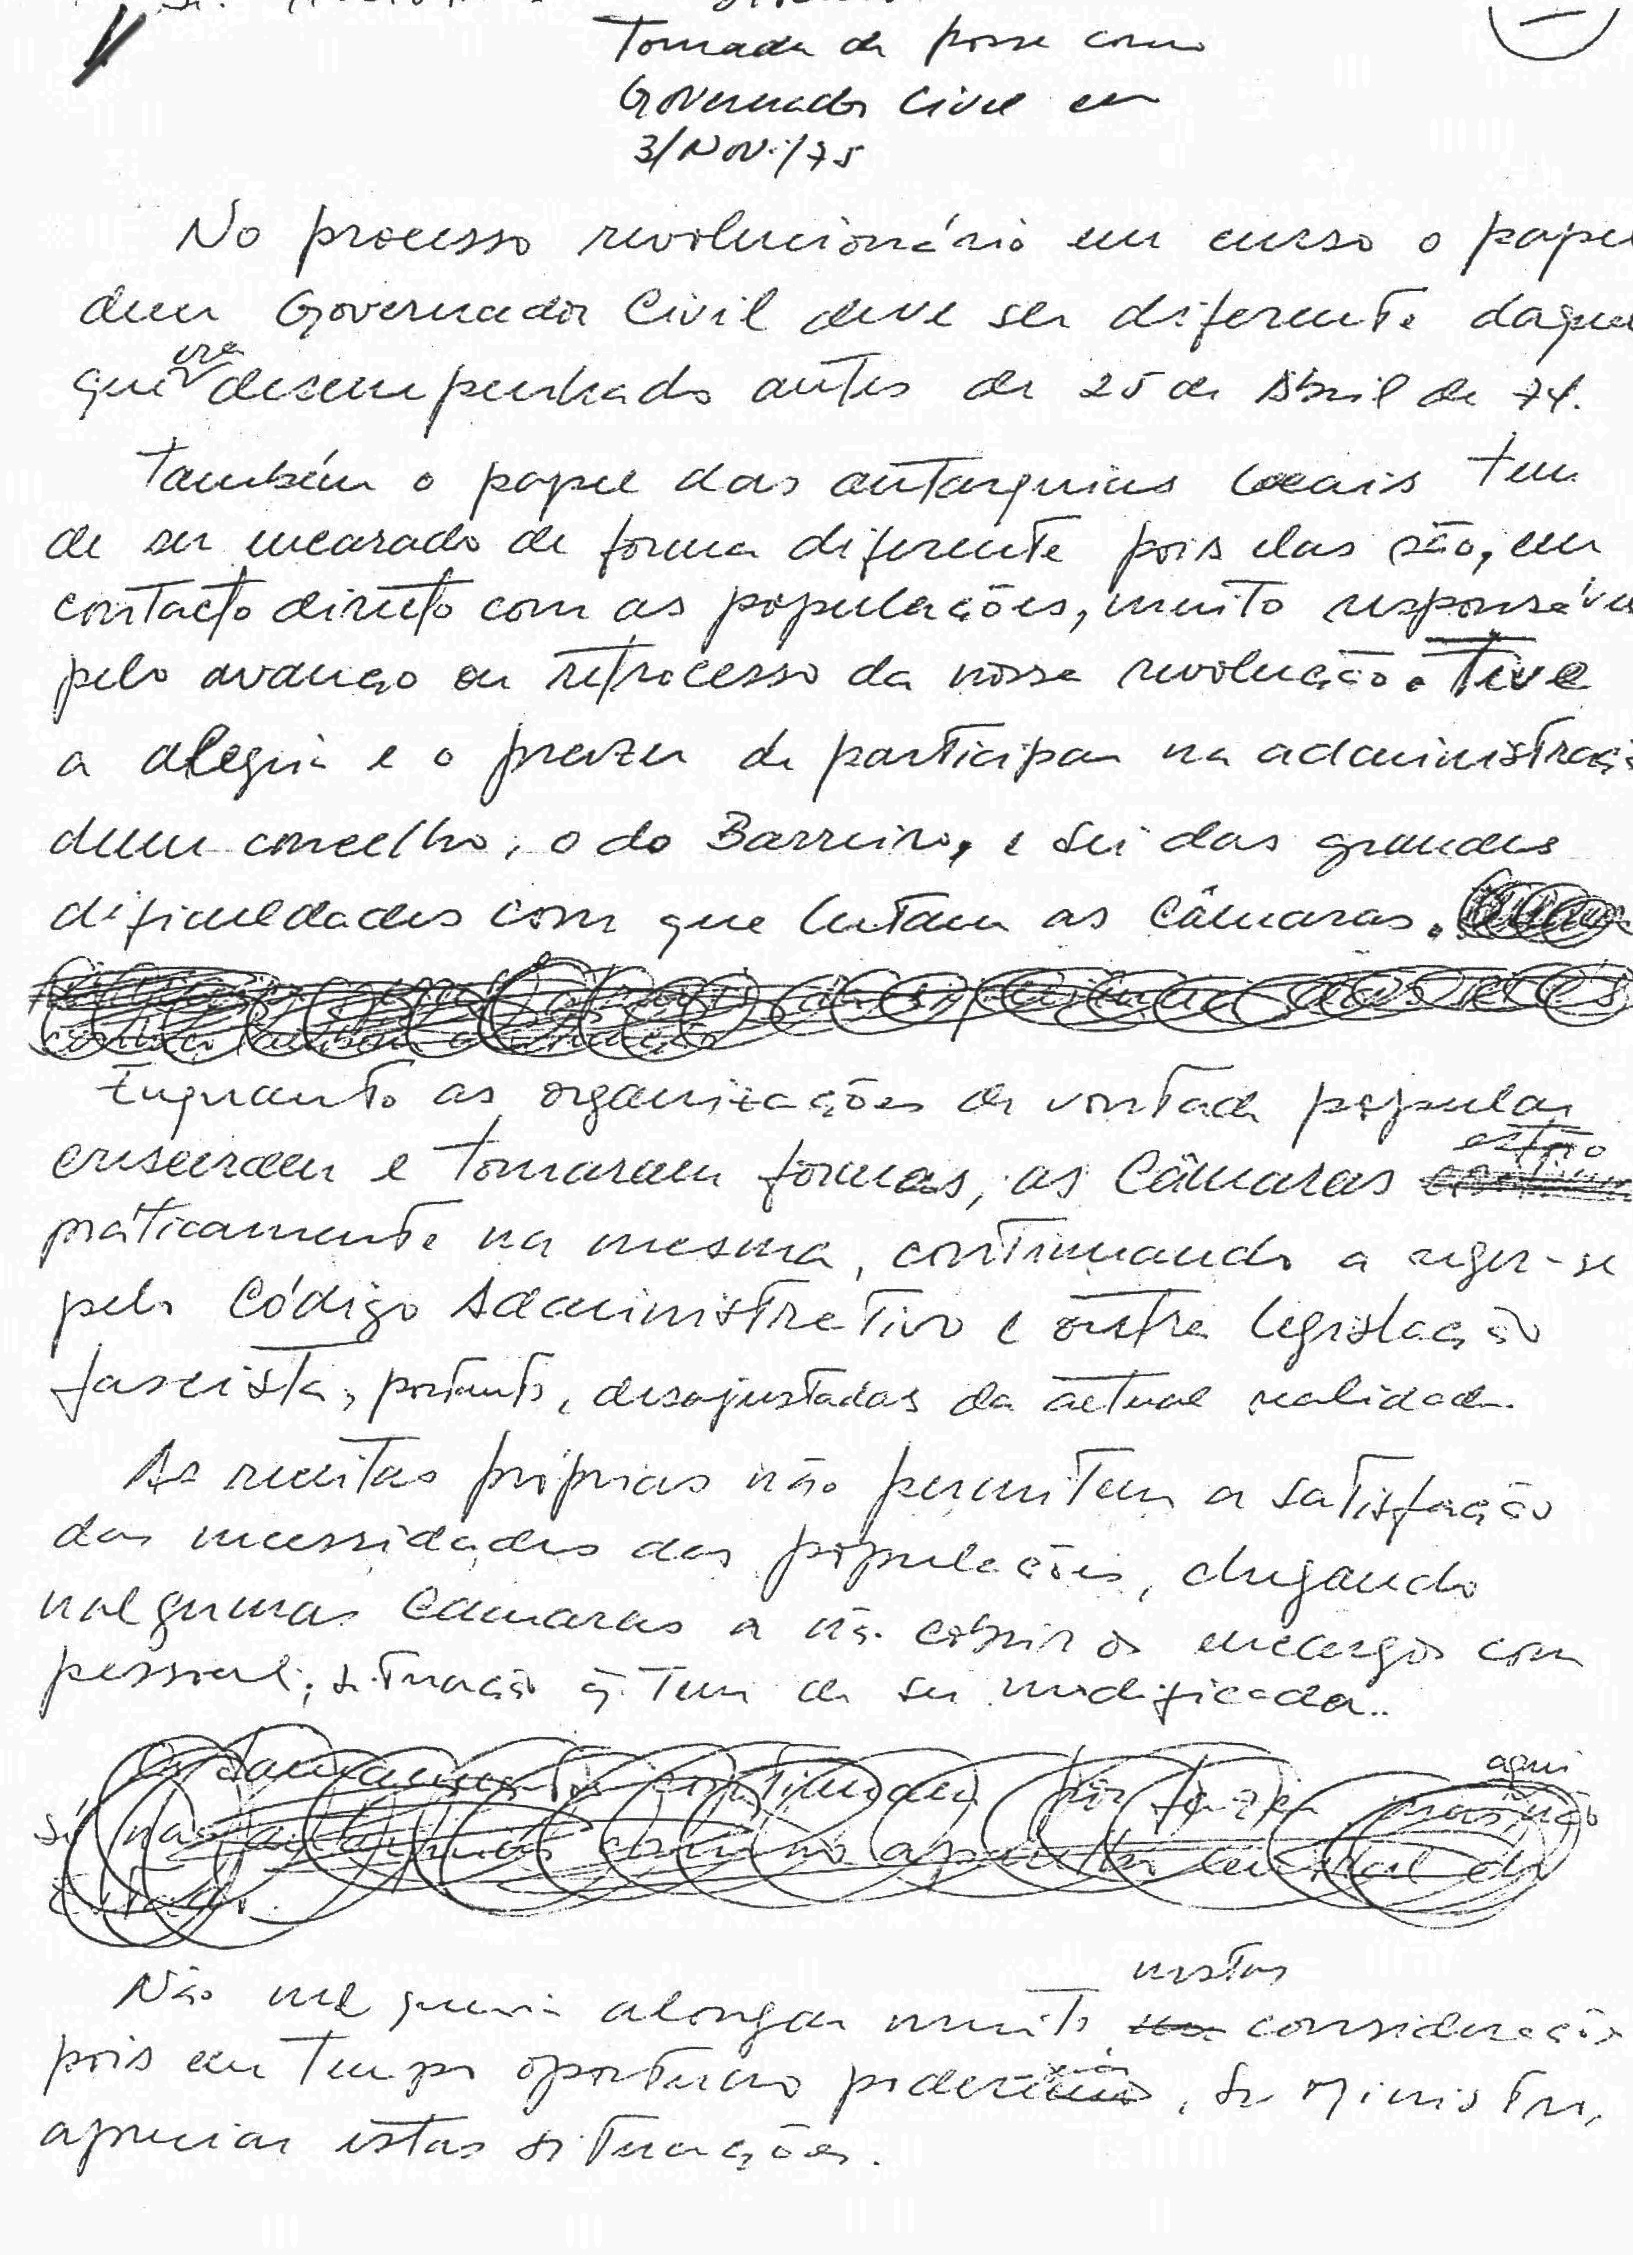 Tomada de posse como
Governador Civil em
3/Nov./75
No processo revolucionário em curso o pape
dum Governador Civil deve ser diferente daque
era
que desempenhado antes de 25 de Abril de 74.
Também o papel das autarquias locais tem
de ser encarado de forma diferente pois elas são, em
contacto directo com as populações, muito responsáve
pelo avanço ou retrocesso da nossa revolução. Tive
a alegria e o prazer de participar na administraçã
dum concelho, o do Barreiro, e sei das grandes
dificuldades com que lutam as Câmaras.
Enquanto as organizações de vontade popular
estão
cresceram e tomaram formas, as Câmaras
práticamente na mesma, continuando a reger-se
pelo Código Administrativo e outra legislação
fascista, portanto, desajustadas da actual realidade.
As receitas próprias não permitem a satisfação
das necessidades das populações, chegando
nalgumas Câmaras a não cobrir os encargos com
pessoal, situação q. tem de ser modificada..
aqui
só nas autarquias como no aparelho central do
Estado.
nestas
Não me queria alongar muito considerações
pois em tempo oportuno poderá, Sr Ministro,
apreciar estas situações.